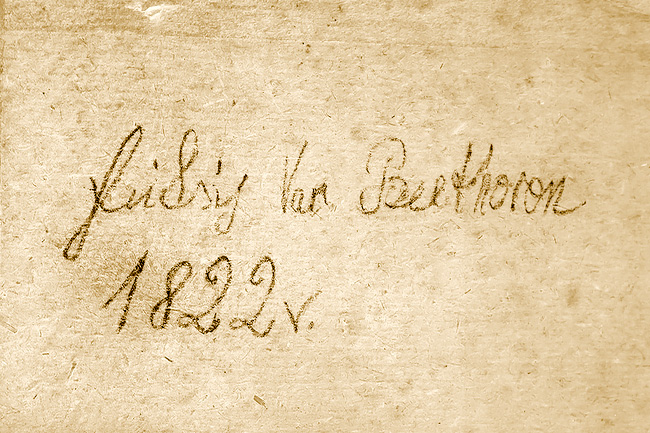 Luidvig Van Beethovon
1822 v.